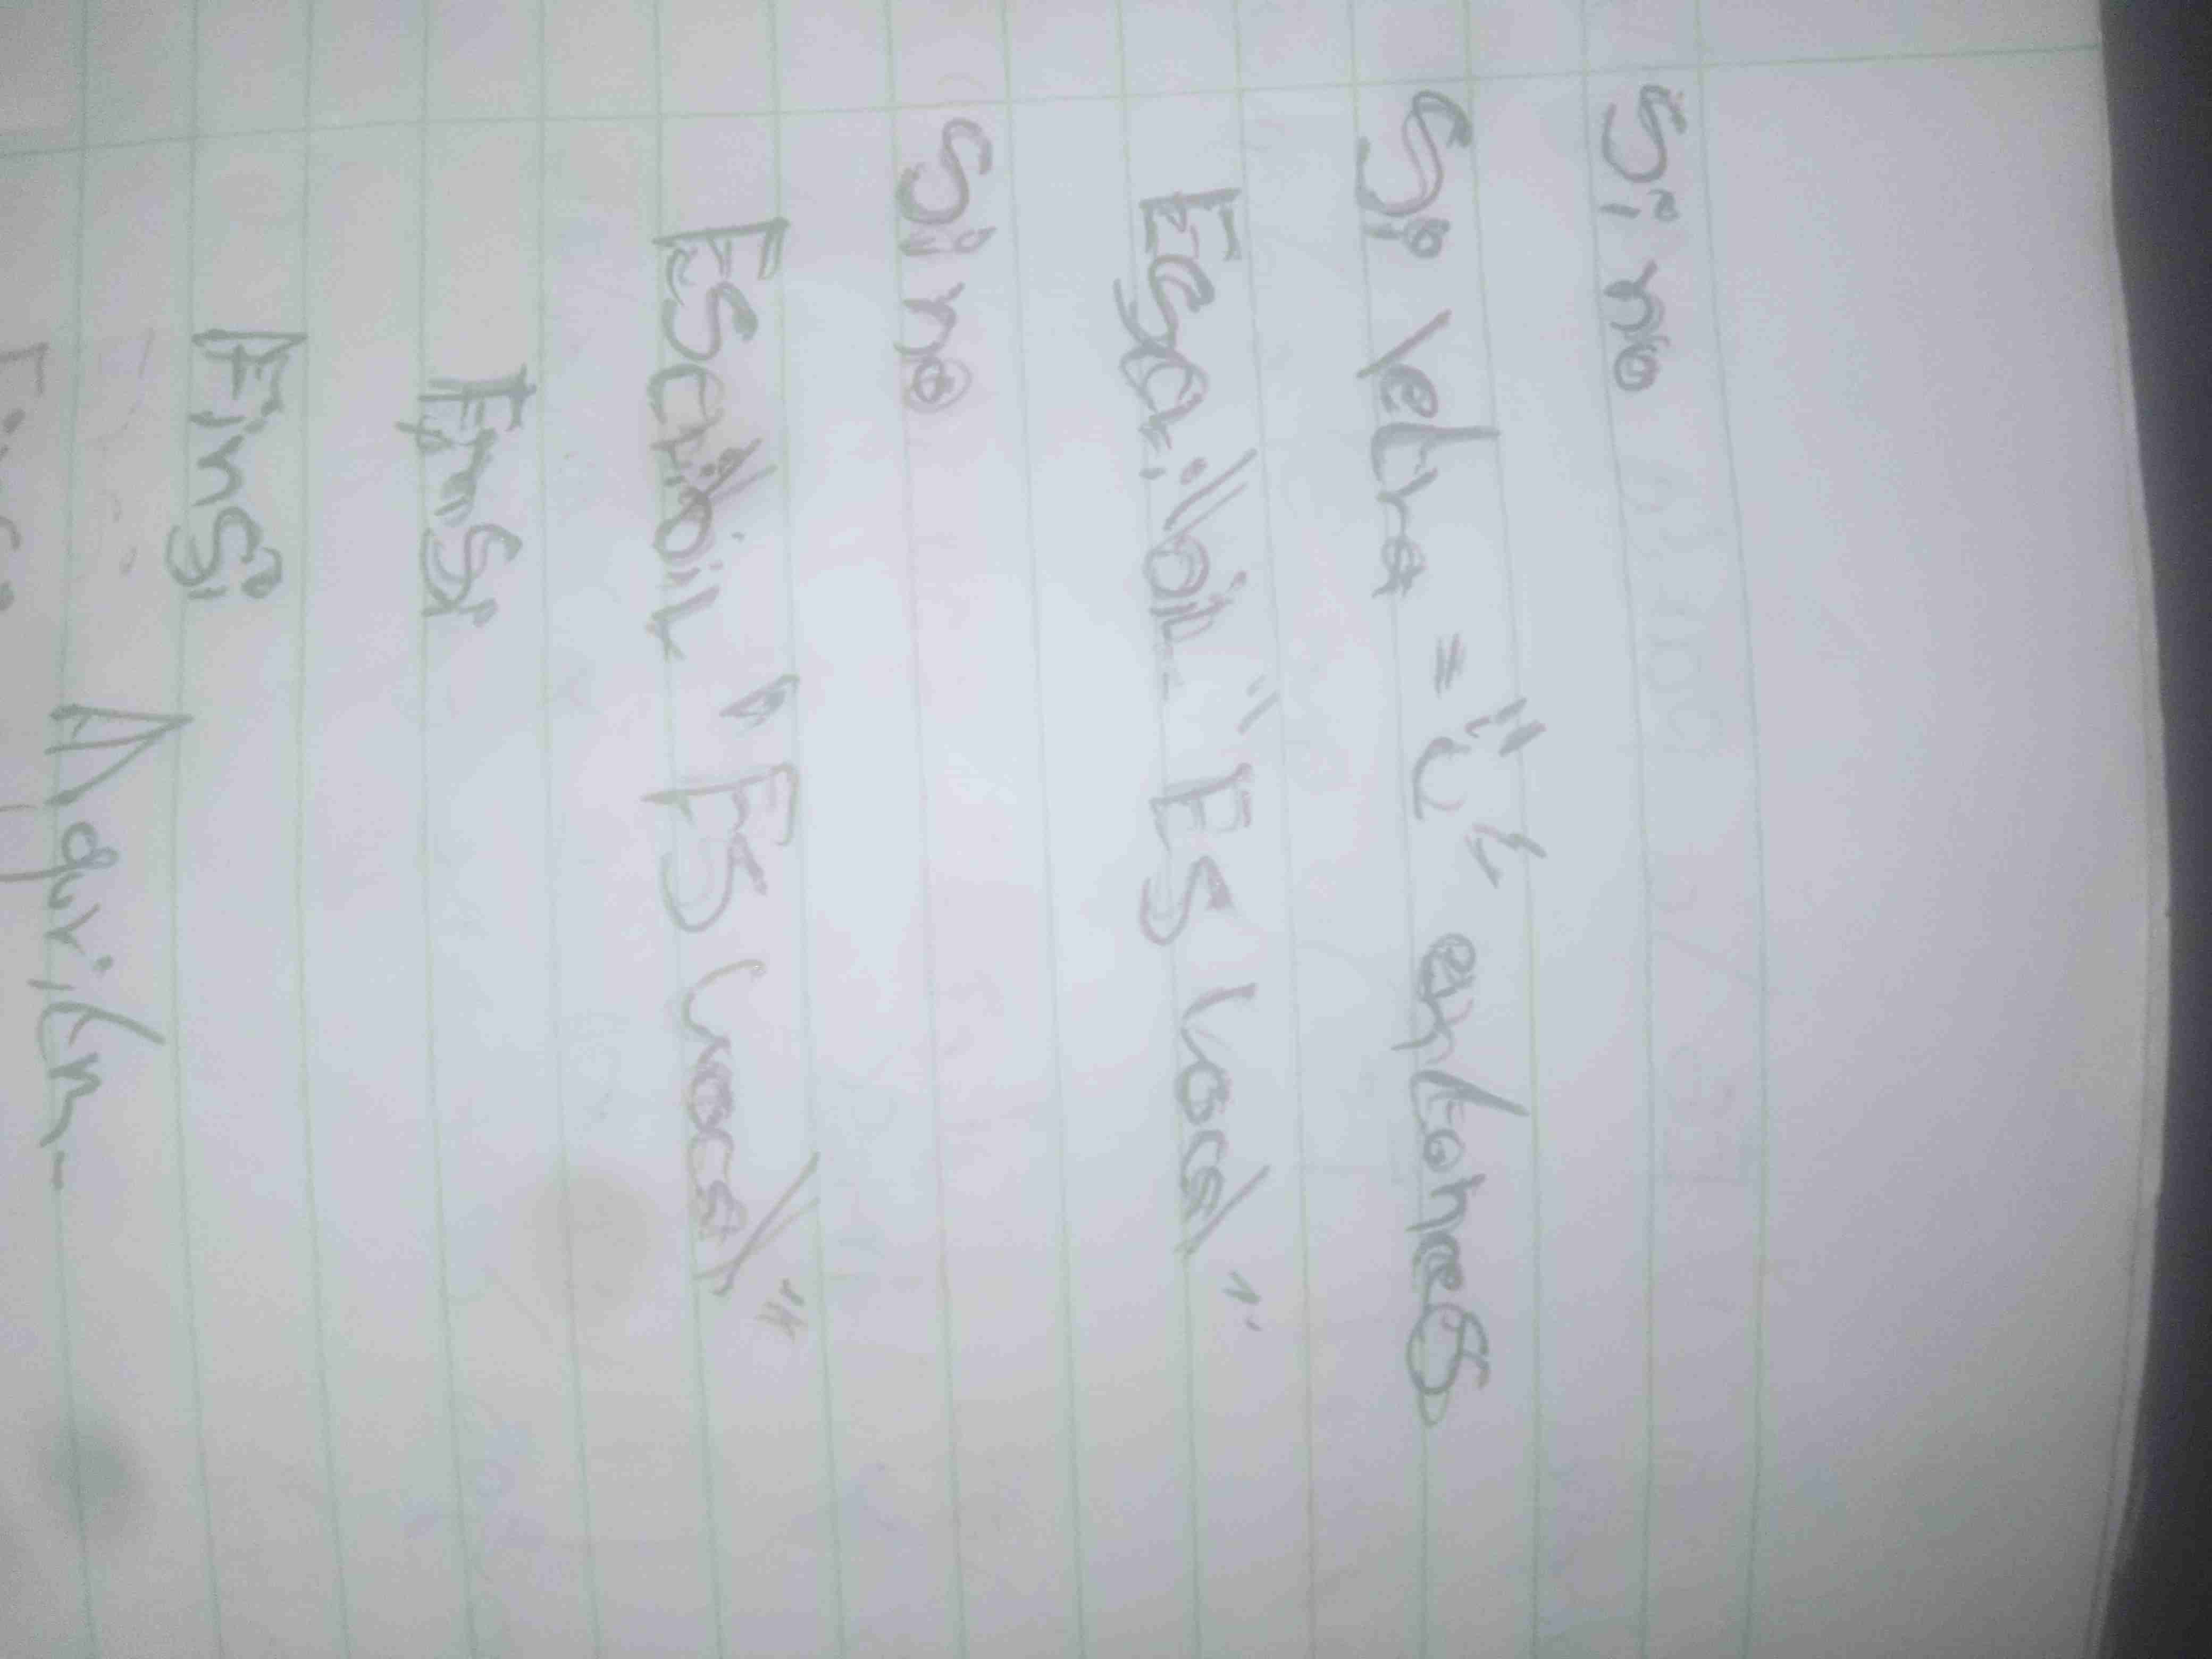 Sino
Si letra = "U" entonces
Escribir "Es vocal"
Sino
Escribir "Es vocal"
FinSi
FinSi
FinSi